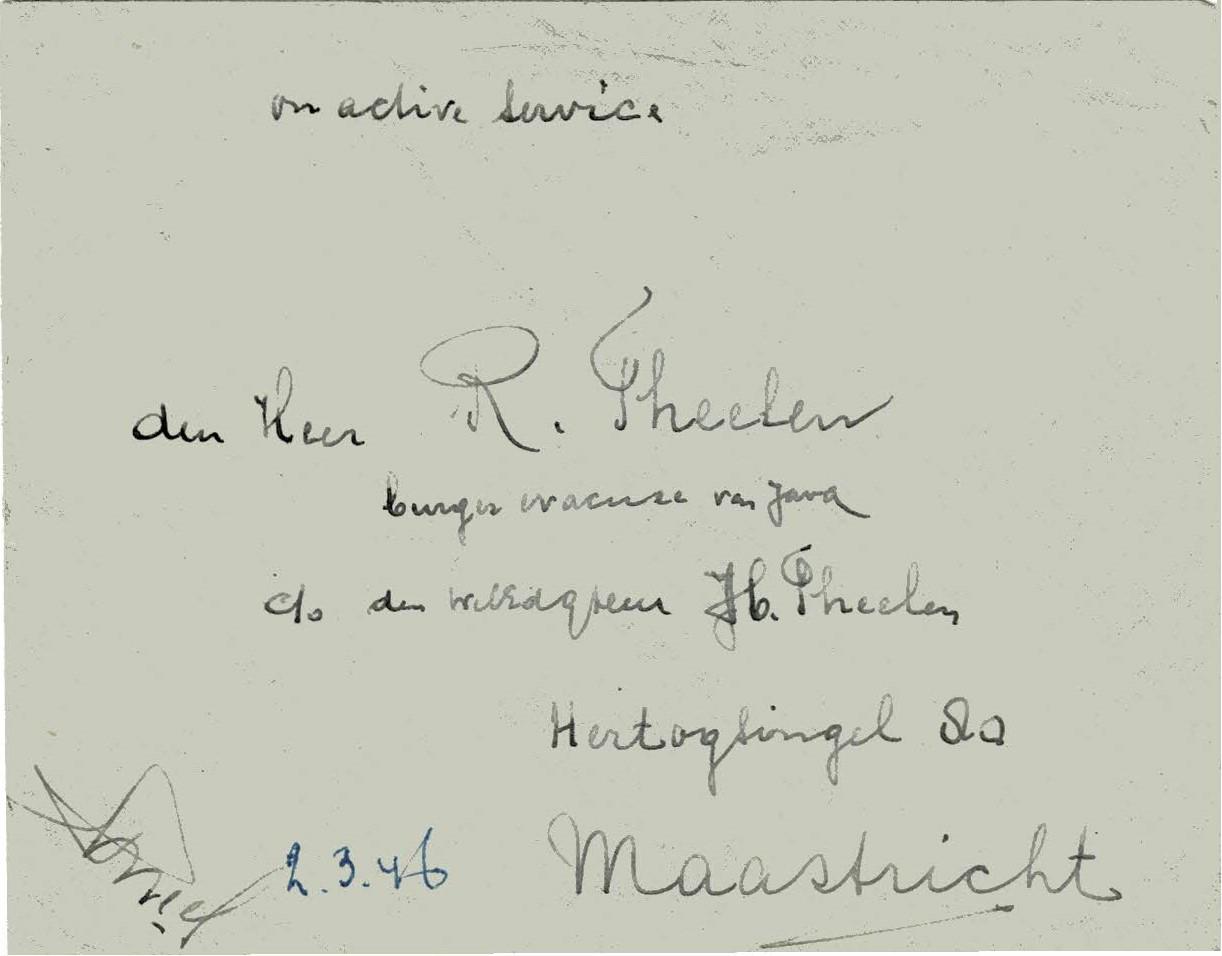 on active service
den Heer R. Theelen
burger evacuee van Java
c/o den WelEdGeb Heer Jb. Theelen
Hertogsingel 8a
Maastricht
2.3.46